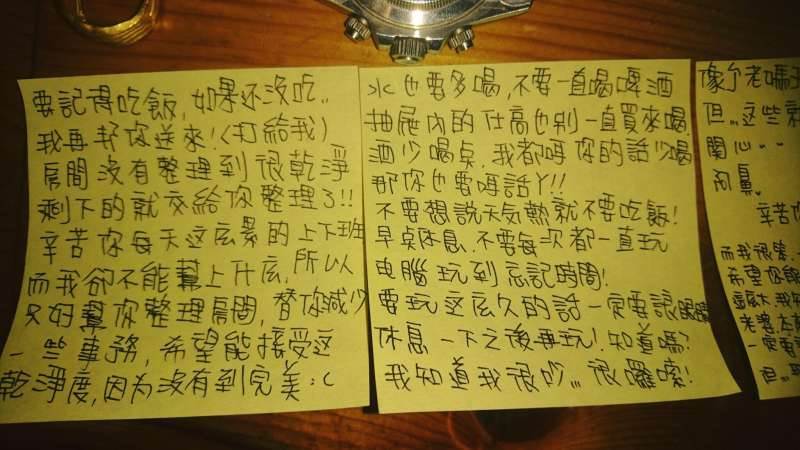 要記得吃飯,如果还沒吃..
我再帮你送來!(打給我)
房間沒有整理到很乾淨
剩下的就交給你整理了!!
辛苦你每天这広累的上下班
而我卻不能幫上什広,所以
只好幫你整理房間,替你減少
一些事務,希望能接受这
乾淨度,因为沒有到完美:C
水也要多喝,不要一直喝啤酒
抽屜內的仕高也別一直買來喝
酒少喝点,我都呀你的話少喝
那你也要呀話丫!!
不要想說天氣熱就不要吃飯!
早点休息,不要每次都一直玩
电腦玩到忘記時間!
要玩这広久的話一定要讓眼睛
休息一下之後再玩!知道嗎?
我知道我很吵,,,很囉嗦!
像个老媽
但..这些
関心..
問臭.
辛苦
而我很笨
希望你
老婆
一定要
但...